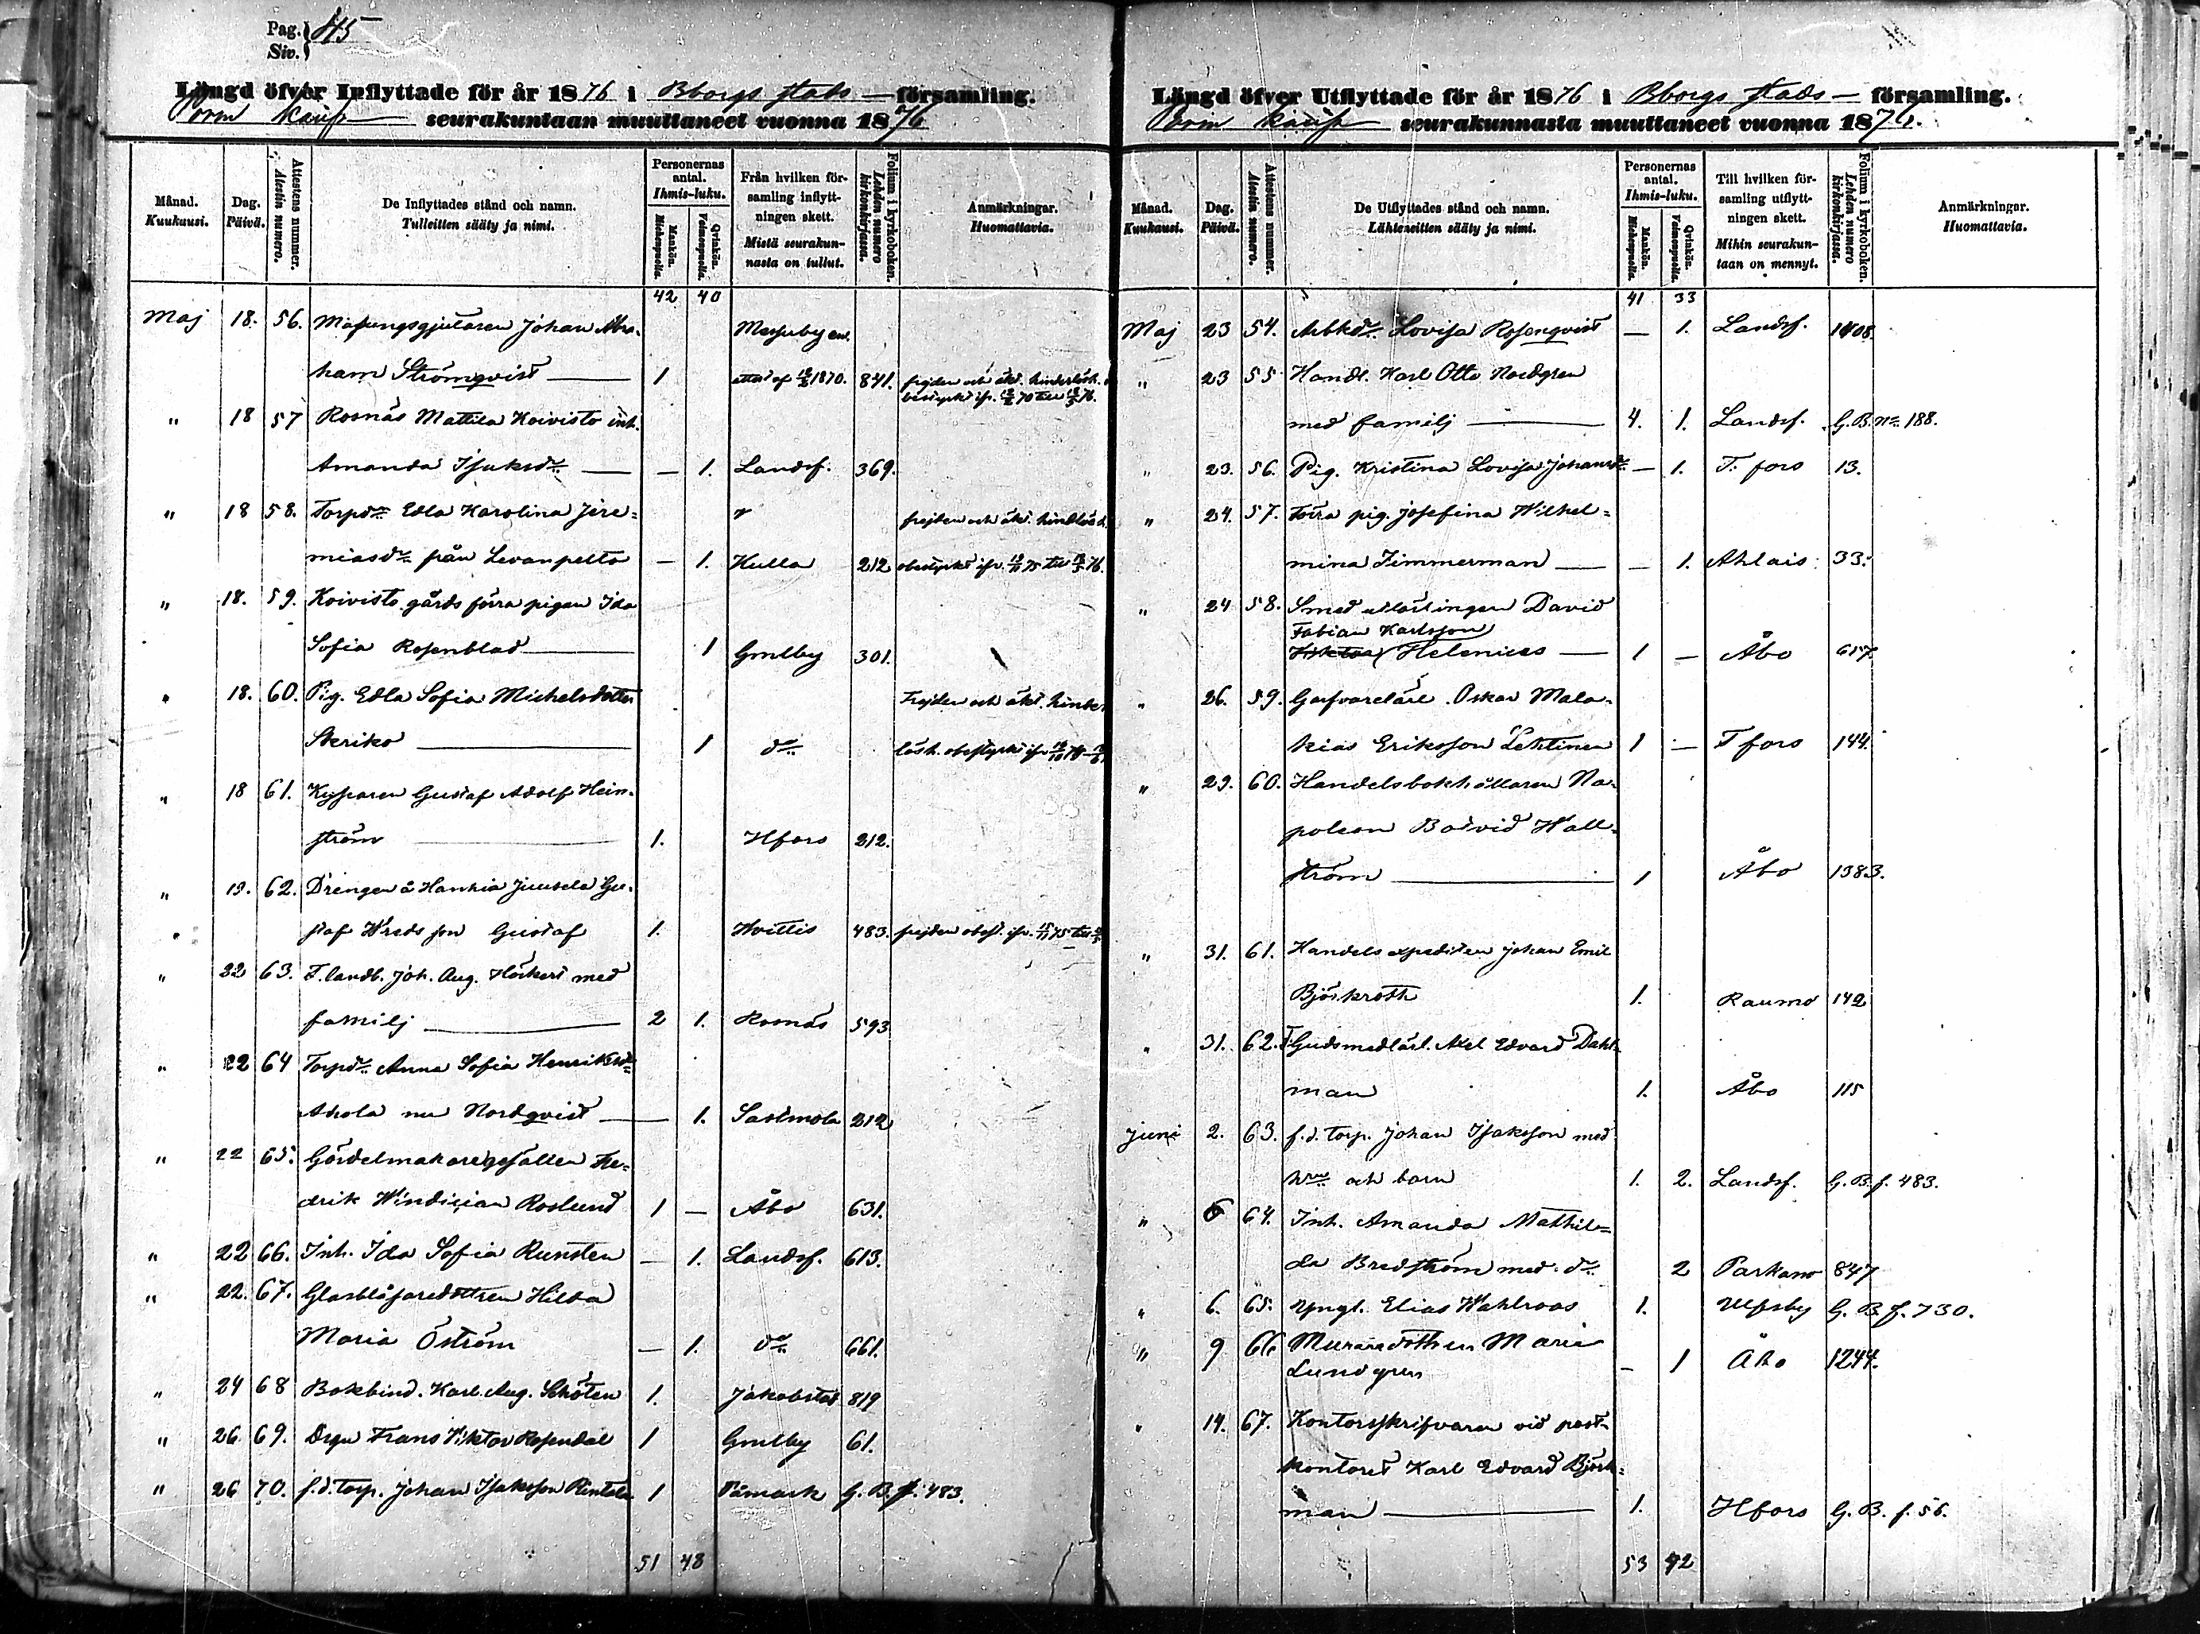 Pag. 45
Siv.
Längd öfver Inflyttade för år 1876 i Bborgs stads församling.
Porin kaup seurakuntaan muuttaneet vuonna 1876
Månad. Kuukausi.
Dag. Päivä.
Attestens nummer. Atestin numero.
De Inflyttades stånd och namn.
Tulleitten sääty ja nimi.
Personernas antal. Ihmis-luku.
Mankön. Miehenpuolia.
Qvinkön. Vaimonpuolia.
Från hvilken församling inflyttningen skett.
Mistä seurakunnasta on tullut.
Folium i kyrkoboken. Lehden numero kirkonkirjassa.
Anmärkningar. Huomattavia.
42 40
Maj 18. 56. Johan Abra-
ham Strömqvist — 1 1870. 841.
" 18 57 Rosnäs Mattila Koivisto inh.
Amanda Isaksdr — — 1. Landsf. 369.
" 18 58. Torpdr Edla Karolina Jere=
miasdr från Levanpelto — 1. Kulla 212
" 18. 59. Koivisto gårds förra pigan Ida
Sofia Rosenblad — 1 Gmlby 301.
" 18. 60. Pig. Edla Sofia Michelsdotter
1 do
" 18 61. Kyparen Gustaf Adolf Hein-
ström — 1. Hfors 212.
" 19. 62. Drengen å Hankia Juusela Gu-
staf Gustaf 1. Hvittis 483.
" 22 63. F. landb. Joh. Aug. Höckert med
familj — 2 1. Rosnäs 593
" 22 64 Torpdr Anna Sofia Henriksdr
Ahola nu Nordqvist — 1. Sastmola 212
" 22 65. Gördelmakaregesällen Fre-
drik Roslund 1 — Åbo 631.
" 22 66. Inh. Ida Sofia Runsten — 1. Landsf. 613.
" 22. 67. Glasblåsaredottren Hilda
Maria Öström — 1. do 661.
" 24 68 Bokbind. Karl Aug. 1. Jakobstad 819
" 26 69. Drgn Frans Viktor Rosendal 1 Gmlby 61.
" 26 70. f.d. torp. Johan Isaksson Rintala 1 Påmark G. B. f. 483.
51 48
Längd öfver Utflyttade för år 1876 i Bborgs stads — församling.
Porin kaup seurakunnasta muuttaneet vuonna 1876.
Månad. Kuukausi.
Dag. Päivä.
Attestens nummer. Atestin numero.
De Utflyttades stånd och namn.
Lähteneitten sääty ja nimi.
Personernas antal. Ihmis-luku.
Mankön. Miehenpuolia.
Qvinkön. Vaimonpuolia.
Till hvilken församling utflyttningen skett.
Mihin seurakuntaan on mennyt.
Folium i kyrkoboken. Lehden numero kirkonkirjassa.
Anmärkningar. Huomattavia.
41 33
Maj 23 54. Arbkdr Lovisa Rosenqvist — 1. Landsf. 1408
" 23 55 Handl. Karl Otto Nordgren
med familj — 4. 1. Landsf. G. B. no 188.
" 23. 56. Pig. Kristina Lovisa Johansdr — 1. T. fors 13.
" 24. 57. Förra pig. Josefina Wilhel=
mina Timmerman — — 1. Ahlais 33.
" 24 58. Smedutlärlingen David
Fabian Karlsson
Helenius — 1 — Åbo 617.
" 26. 59. Garfvarelärl. Oskar Mala-
kias Eriksson Lehtinen 1 — T fors 144.
" 29. 60. Handelsbokhållaren Na-
poleon Bodvid Hall-
ström — 1 Åbo 1383.
" 31. 61. Handelsexpediten Johan Emil
Björkroth 1. Raumo 142
" 31. 62. Gulsmedlärl. Axel Edvard Dahl-
man 1. Åbo 115
Juni 2. 63. f.d. torp. Johan Isaksson med
hru och barn 1. 2. Landsf. G. B. f. 483.
" 6 64. Inh. Amanda Mathil-
da Bredström med dr 2 Parkano 847
" 6. 65. Yngl. Elias Wahlroos 1. Ulfsby G. B. f. 730.
" 9 66 Muraredottren Maria
Lundgren — 1 Åbo 1244.
" 14. 67. Kontorsskrifvaren vid post-
kontoret Karl Edvard Björk-
man — 1. Hfors G. B. f. 56.
53 42